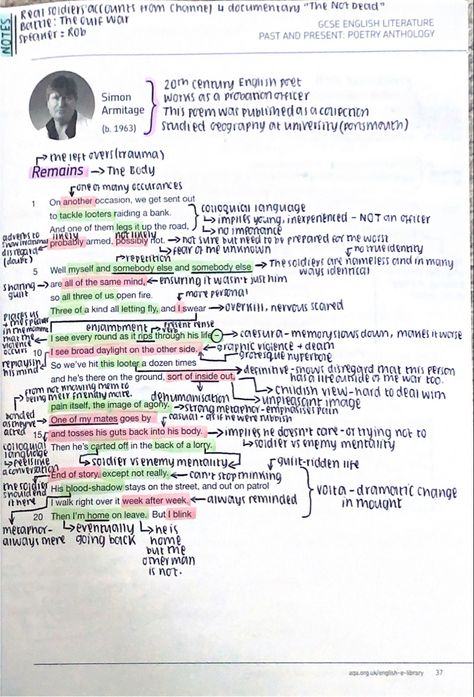 NOTES
Real soldiers accounts from Channel 4 documentary "The Not Dead"
Battle: The Gulf War
Speaker = Rob
GCSE ENGLISH LITERATURE
PAST AND PRESENT: POETRY ANTHOLOGY
Simon
Armitage
(b. 1963)
20th century English poet
Works as a probation officer
This poem was published as a collection
Studied geography at university (Portsmouth)
→ the left overs (trauma)
Remains → The Body
one of many occurances
1 On another occasion, we get sent out
to tackle looters raiding a bank.
And one of them legs it up the road,
colloquial language
→ implies young, inexperienced - NOT an officer
→ no importance
→ fear of the unknown
likely
not likely
probably armed, possibly not.
→ not sure but need to be prepared for the worst
adverbs to
disregard
(doubt)
repetition
no true identity
5 Well myself and somebody else and somebody else
→ The soldiers are nameless and in many
ways identical
sharing
guilt
are all of the same mind,
← ensuring it wasn't just him
so all three of us open fire.
more personal
Three of a kind all letting fly, and I swear
→ overkill, nervous, scared
enjambment
present tense
I see every round as it rips through his life –
caesura - memory slows down, makes it worse
10 I see broad daylight on the other side.
→ graphic violence + death
grotesque hyperbole
So we've hit this looter a dozen times
and he's there on the ground, sort of inside out,
definitive - shows disregard that this person
has a life outside of the war too.
childish view - hard to deal with
unpleasant image
dehumanisation
pain itself, the image of agony.
→ strong metaphor - emphasises pain
One of my mates goes by
casual - as if he were rubbish
15 and tosses his guts back into his body.
→ implies he doesn't care - or trying not to
Then he's carted off in the back of a lorry.
soldier vs enemy mentality
soldier vs enemy mentality
guilt-ridden life
colloquial
language
conversation
End of story, except not really.
← can't stop thinking
His blood-shadow stays on the street, and out on patrol
I walk right over it week after week.
← always reminded
volta - dramatic change
in thought
20 Then I'm home on leave. But I blink
metaphor -
always there
eventually
going back
he is
home
but the
other man
is not.
aqa.org.uk/english-e-library 37